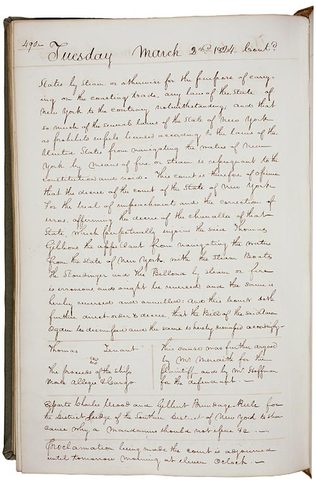 490
Tuesday March 2nd 1824. Cont'd
States by steam or otherwise for the purpose of carry-
ing on the coasting trade, any law of the State of
New York to the contrary notwithstanding, and that
so much of the several laws of the State of New York
as prohibits vessels licensed according to the laws of the
United States from navigating the waters of New
York by means of fire or steam is repugnant to the
constitution and void. This court is therefore of opinion
that the decree of the court of the State of New York
for the trial of impeachments and the correction of
errors, affirming the decree of the chancellor of that
State which perpetually enjoins the said Thomas
Gibbons the appellant from navigating the waters
of the State of New York with the Steam Boats
the Stoudinger and the Bellona by steam or fire
is erroneous and ought to be reversed and the same is
hereby reversed and annulled: and this court doth
further direct order & decree that the Bill of the said Aaron
Ogden be dismissed and the same is hereby dismissed accordingly
Thomas Tenant
vs
The
of the ship
This cause was further argued
by Mr. Meredith for the
plaintiff and by Mr. Hoffman
for the defendant.
Exparte Charles Wood and Gilbert Brundage Rule for
the District Judge of the Southern District of New York to shew
cause why a Mandamus should not issue &c
Proclamation being made the court is adjourned
until tomorrow morning at eleven oclock